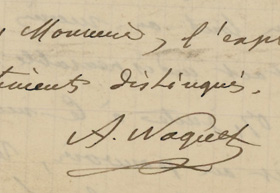 Monsieur, l'exp
timents distingués.
A. Naquet